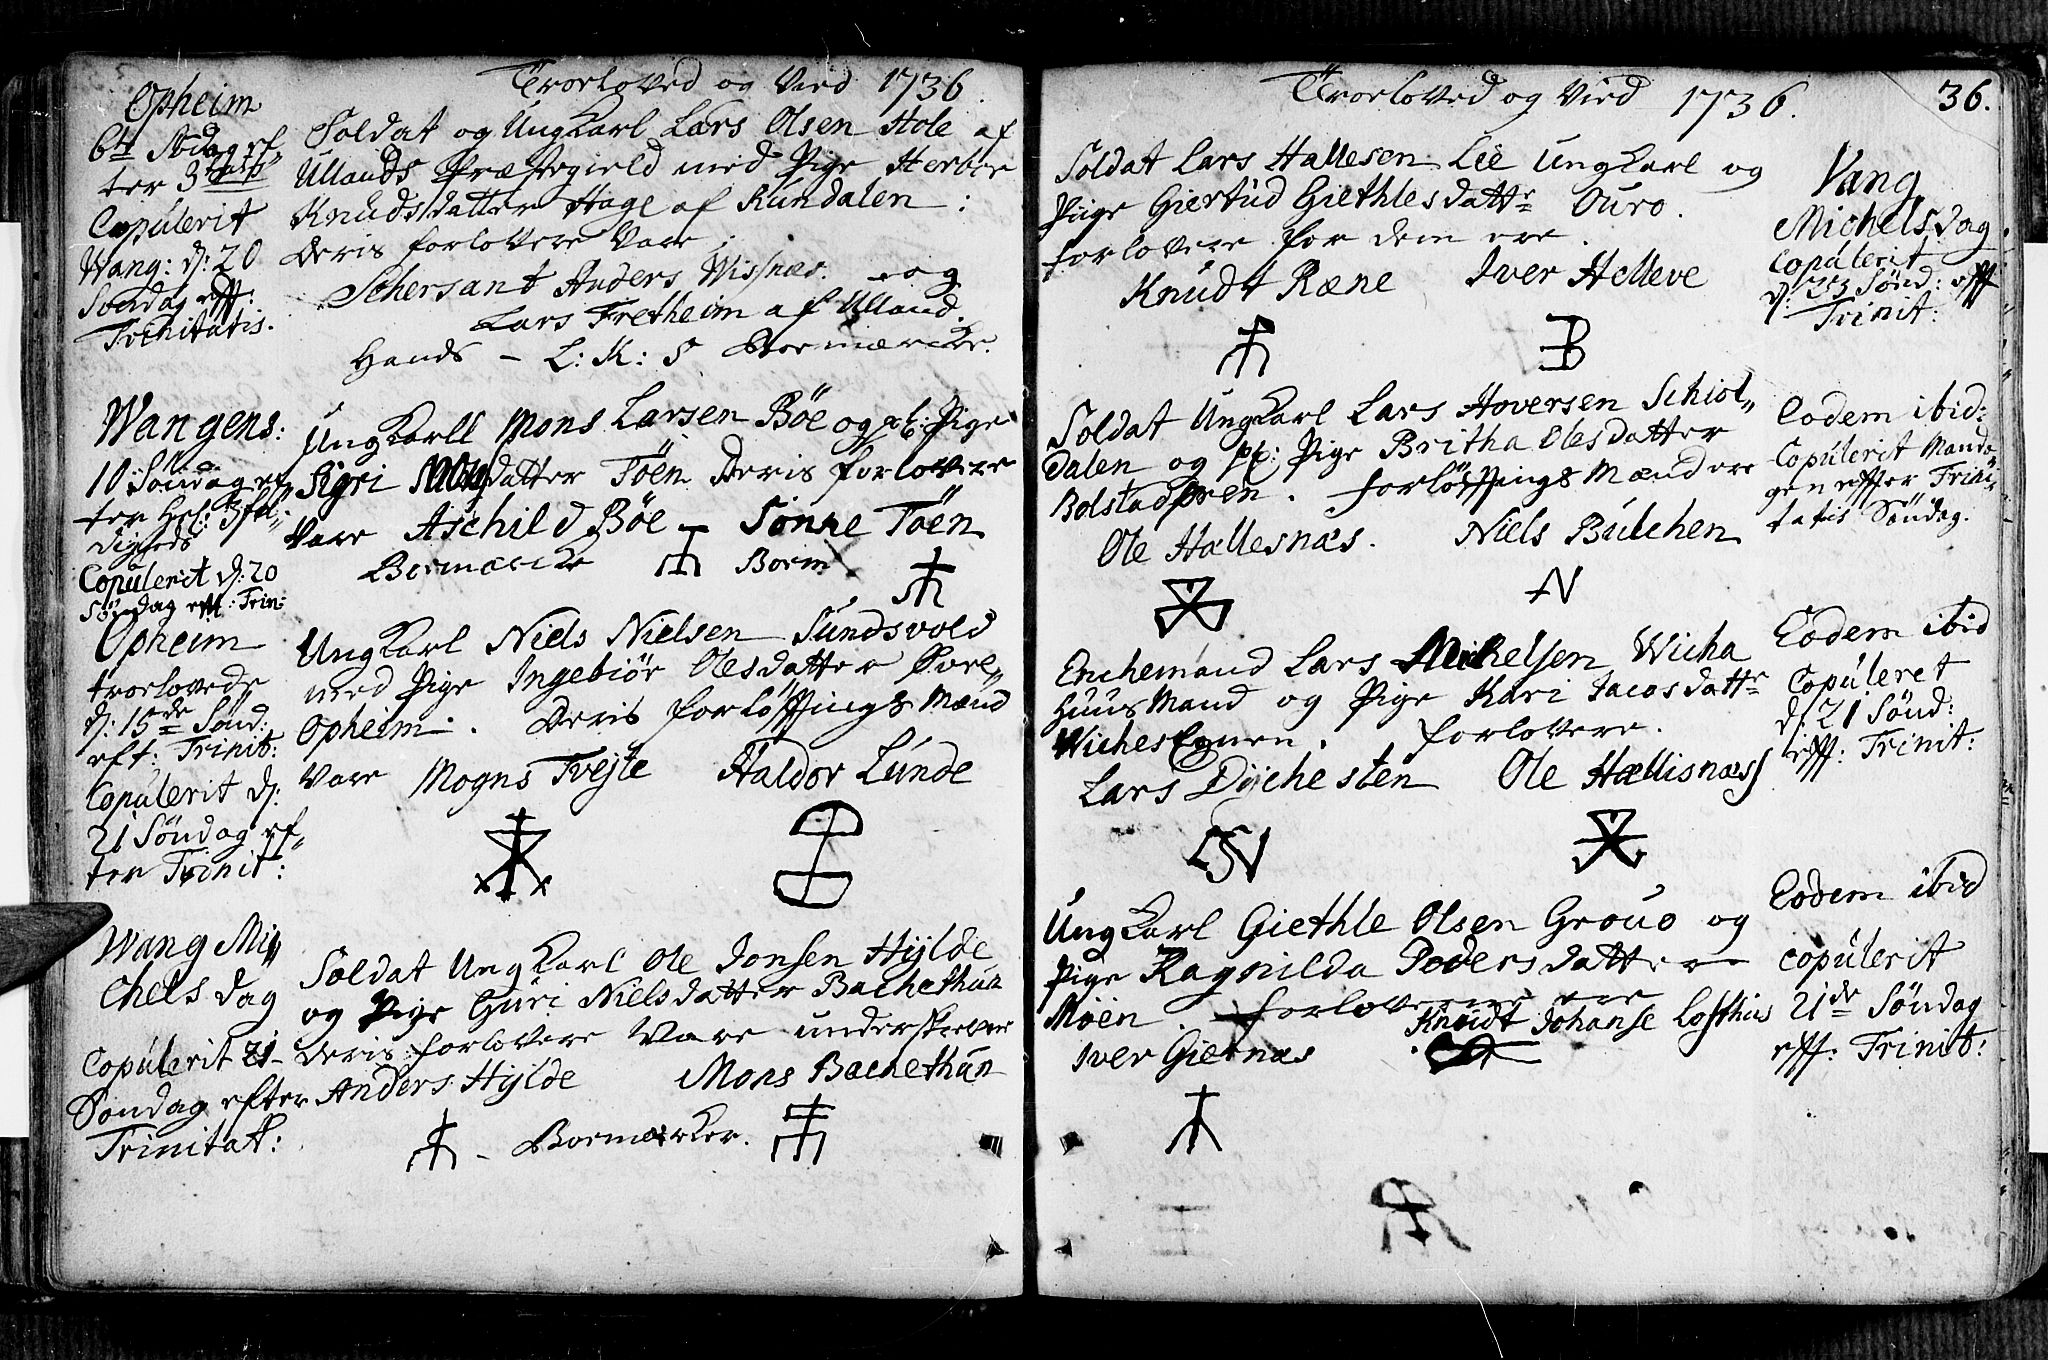 Troeloved og Vied 1736
Opheim
6te Sødag ef
ter 3
Copulerit
Wang: d: 20
Søndag eff:
Trinitatis.
Soldat og UngKarl Lars Olsen Hole af
Ullands Præstegield med Pige Herbor
Knudsdatter Hage af Rundalen:
Deris forlovere Vare,
Schersant Anders Wisnæs. og
Lars Fretheim af Ulland.
Hands – L: K: S Boemærcke.
Wangens:
10 Søndag ef
ter Hel: 3fol
digheds
Copulerit d: 20
Søndag eff: Trin:
UngKarll Mons Larsen Bøe og Pige
Sigri datter Tøen Deris forlovere
Vare Aschild Bøe – Sønne Tøen
Boemærcke Boem
Opheim
troelovede
d: 15de Sønd:
eft: Trinit:
Copulerit d:
21 Søndag ef-
ter Trinit:
UngKarl Niels Nielsen Sundsvold
med Pige Ingebiør Olesdatter Øvre
Opheim. Deris forløftnings Mænd
Vare Mogns Tvejte Haldor Lunde
Wang Mi-
chels dag
Copulerit 21-
Søndag efter
Trinitat:
Soldat UngKarl Ole Jonsen Hylde
og Pige Guri Nielsdatter Bachethun
Deris forlovere Vare underskrevne
Anders Hylde Mons Bachethun
Boemærker.
Troeloved og Vied 1736. 36.
Soldat Lars Hallesen Lee UngKarl og
Pige Giertud Giethlesdattr Ouro.
forlovere for dem ere.
Knudt Ræne Iver Helleve
Vang
Michelsdag
Copulerit
d: 23 Sønd: eff
Trinit:
Soldat UngKarl Lars Hoversen Schiol-
dalen og Pige Britha Olesdatter
Bolstadøren. forløftnings Mænd ere
Ole Hallesnæs. Niels Bulchen
Eodem ibid:
Copulerit Manda
gen effter Trini-
tatis Søndag.
Enchemand Lars Michelsen Wicha
HuusMand og Pige Kari Jacosdattr
Wiches Egnen. forlovere.
Lars Dychesten Ole Hællisnæs
Eodem ibid
Copuleret
d: 21 Sønd:
eff: Trinit:
UngKarl Giethle Olsen Grouo og
Pige Ragnilda Podersdatter
Møen. forloverne ere
Iver Giernæs Knudt Johanse Lofthus
Eodem ibid
copulerit
21de Søndag
eff: Trinit: